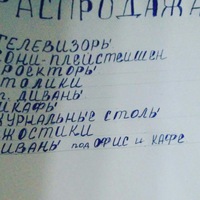 РАСПРОДАЖА
ТЕЛЕВИЗОРЫ
СОНИ-ПЛЕИСТЕИШЕН
РОЕКТОРЫ
ТОЛИКИ
Г. ДИВАНЫ
ШКАФЫ
ЖУРНАЛЬНЫЕ СТОЛЫ
ЖОСТИКИ
ИВАНЫ ПОД ОФИС И КАФЕ